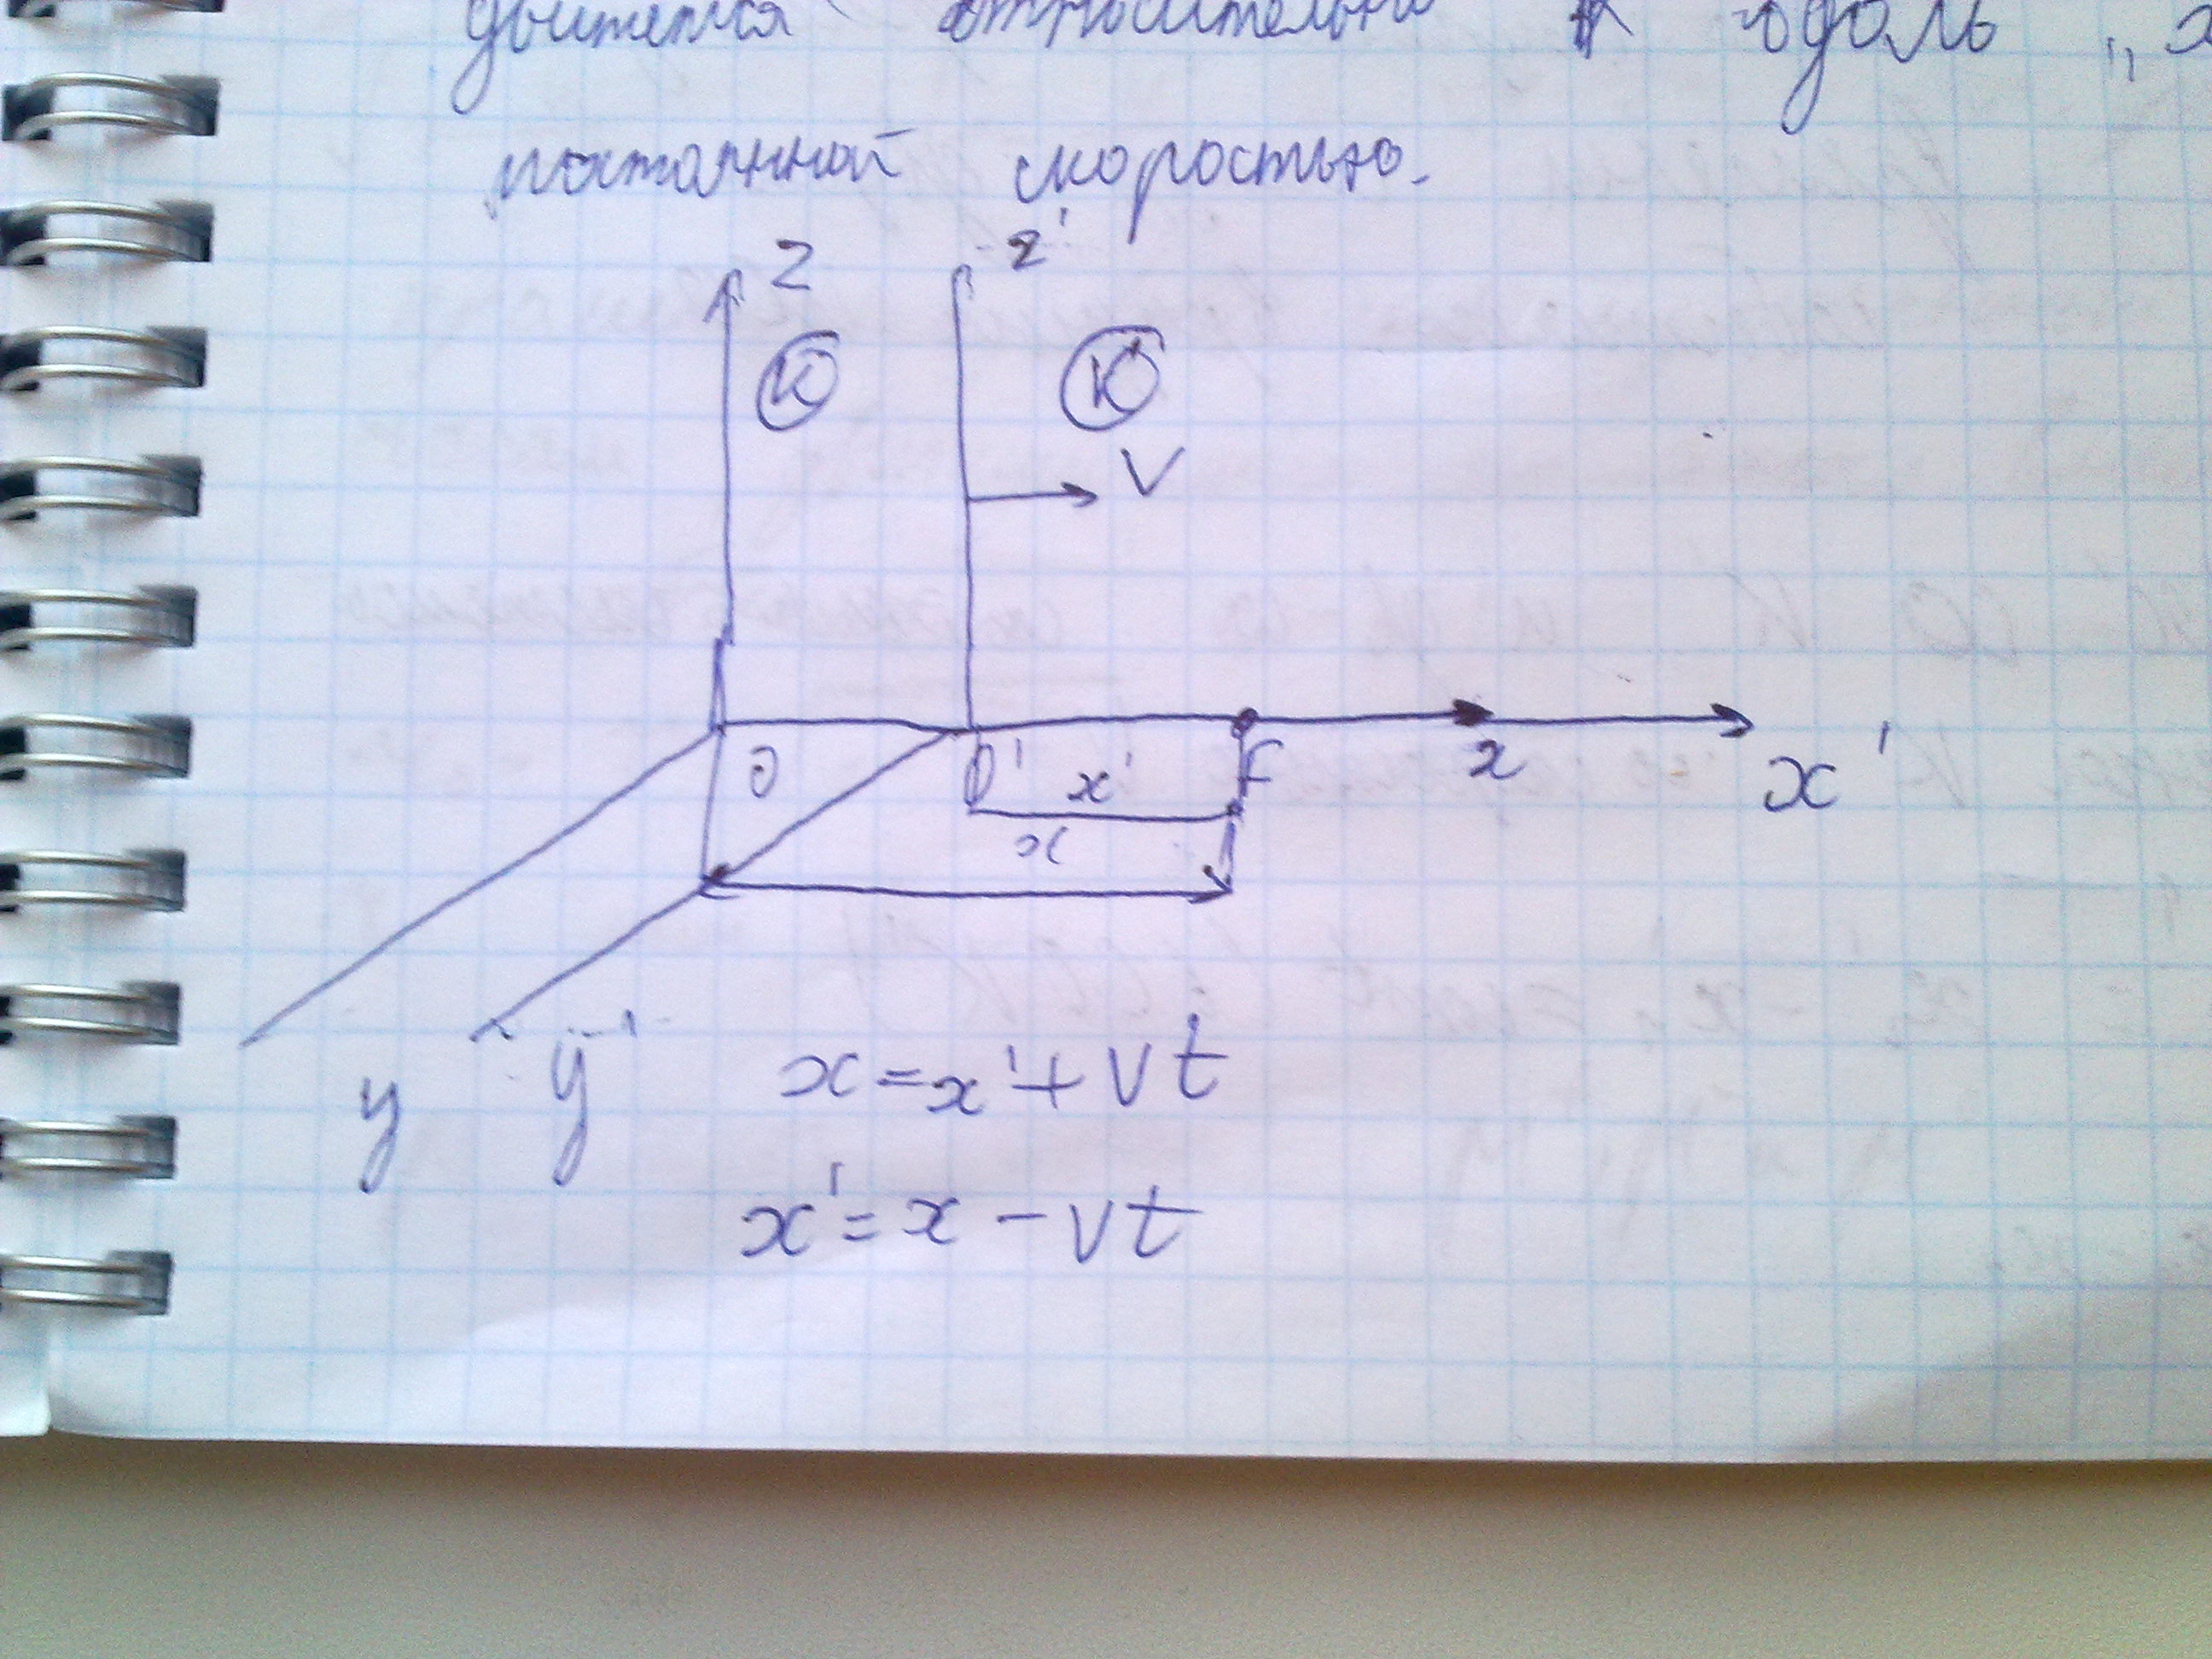 движется относительно К вдоль "x
постоянной скоростью.
z z'
K K'
V
O O' x' F x x'
x
y y'
x = x' + Vt
x' = x - Vt